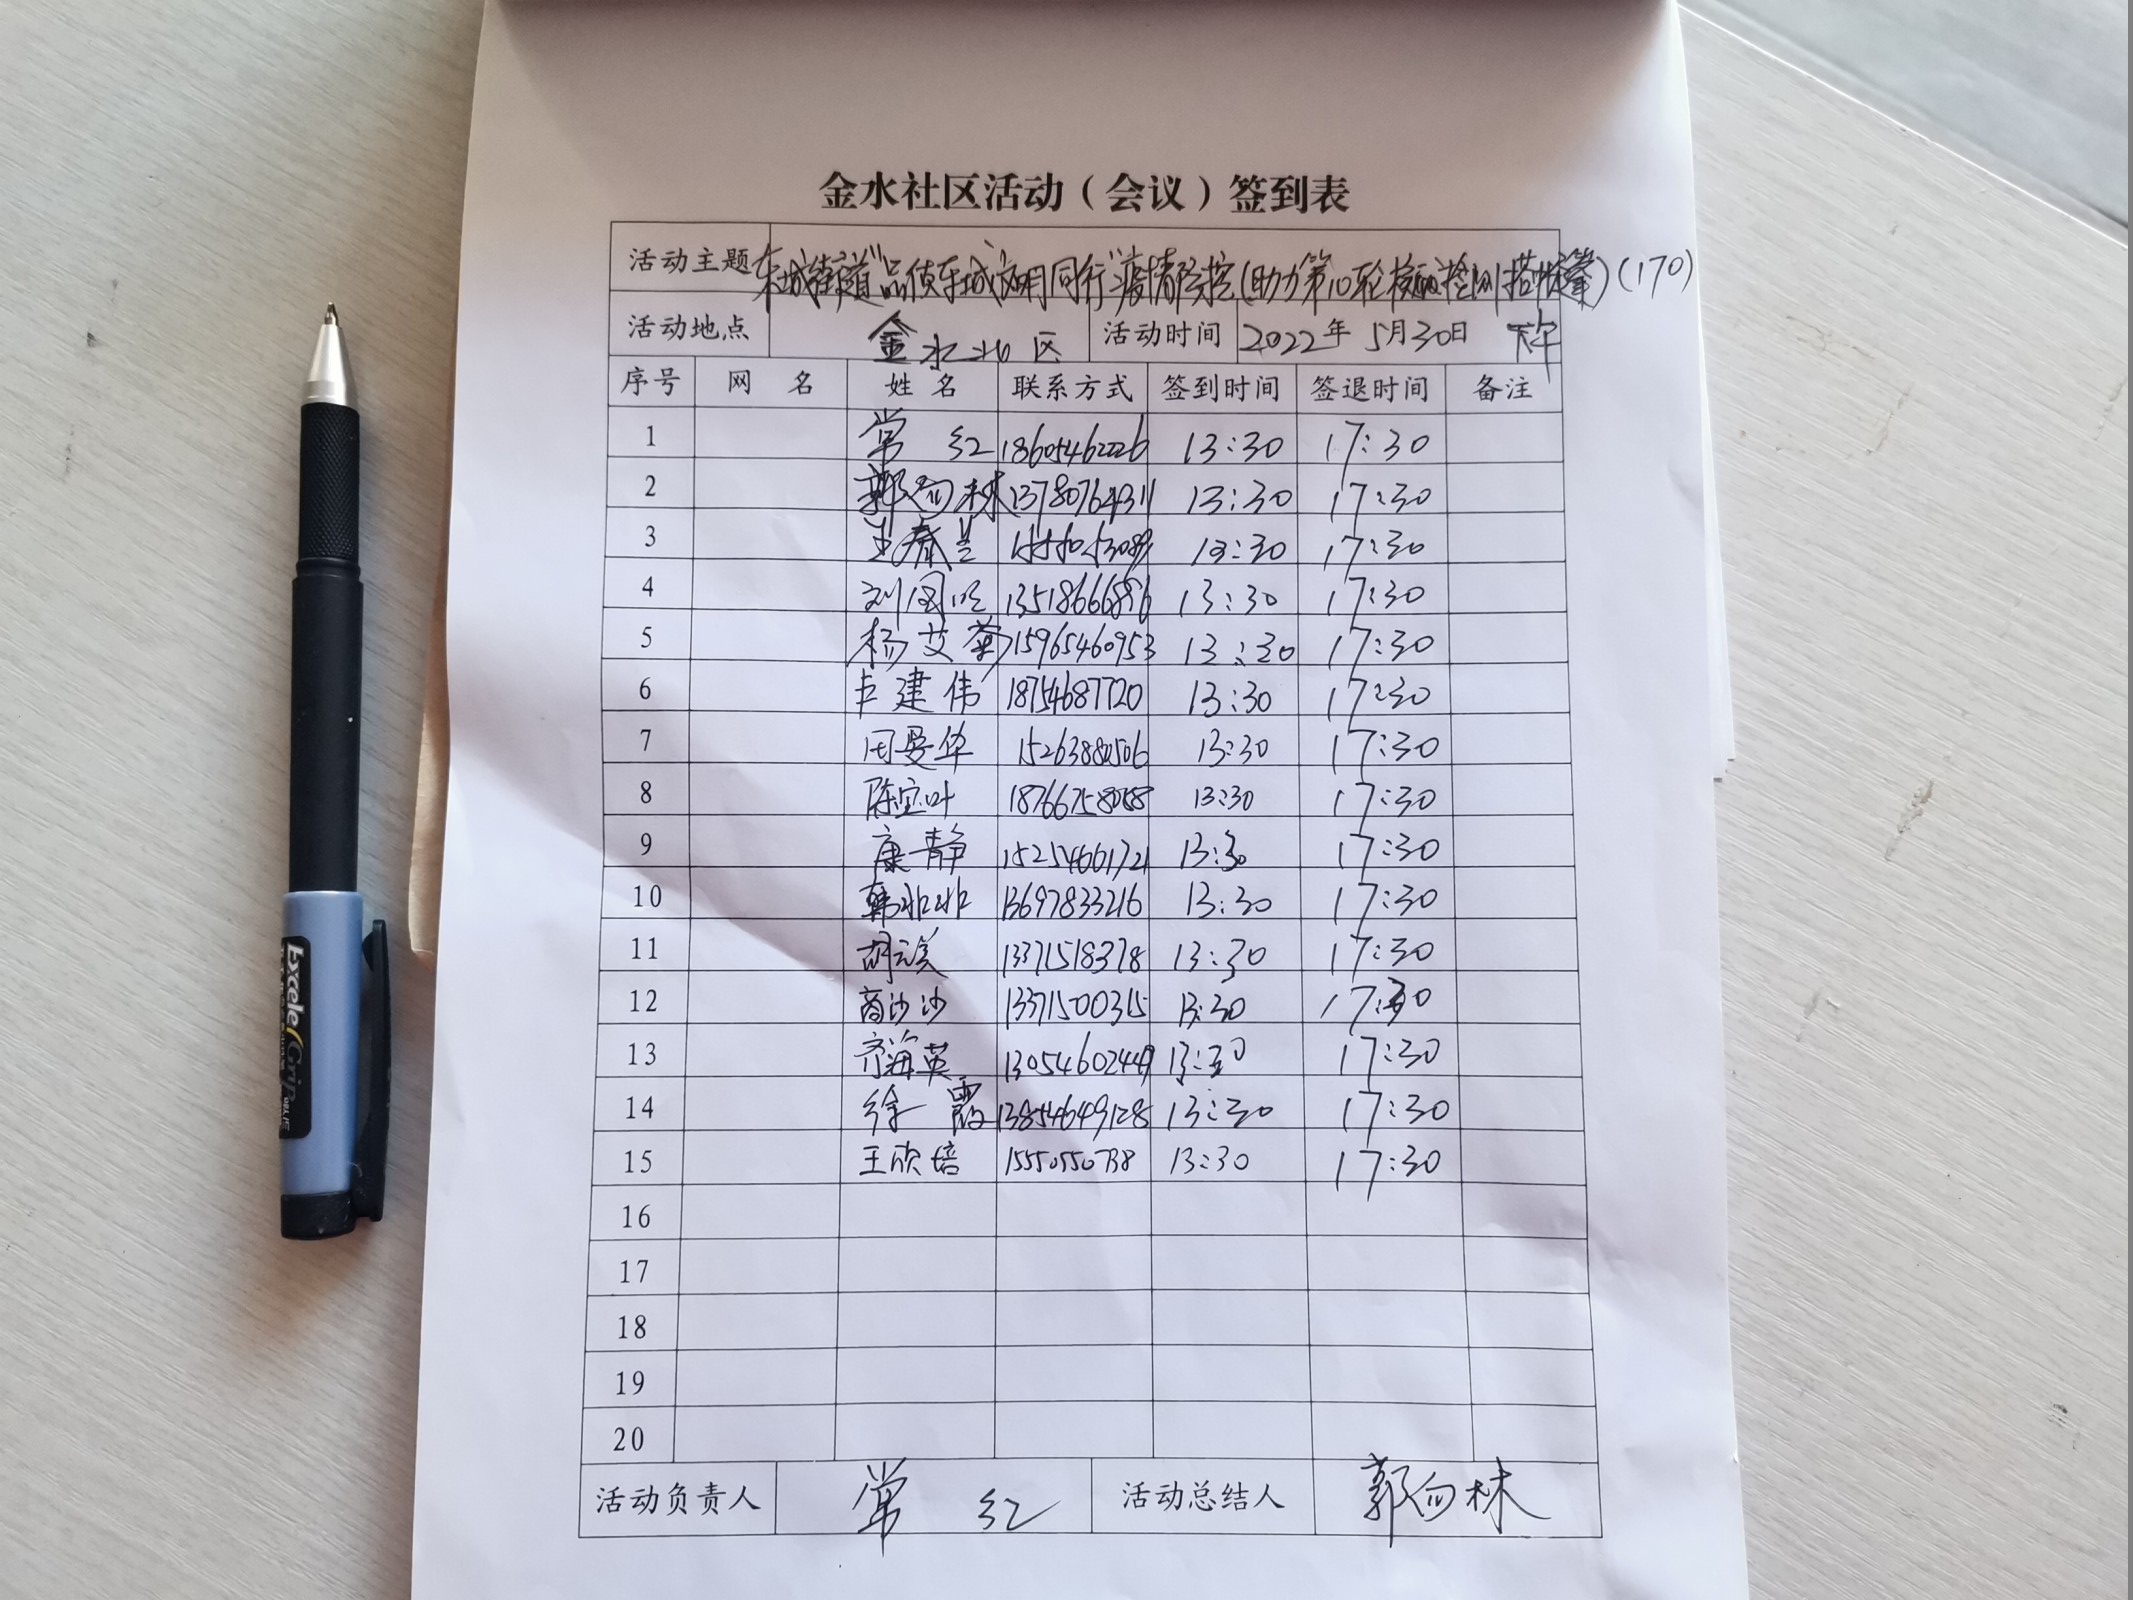 金水社区活动（会议）签到表
活动主题 东城街道"品质东城 文明同行"疫情防控(助力第10轮核酸检测搭帐篷)(170)
活动地点 金水社区 活动时间 2022年 5月30日 下午
序号 网 名 姓 名 联系方式 签到时间 签退时间 备注
1 常 红 18605462226 13:30 17:30
2 郭向林 13780764311 13:30 17:30
3 王春兰 13:30 17:30
4 刘国臣 13518666896 13:30 17:30
5 杨艾菊 15965460953 13:30 17:30
6 卢建伟 18754687720 13:30 17:30
7 周曼华 15263880506 13:30 17:30
8 陈宝叶 13:30 17:30
9 康静 15254661721 13:30 17:30
10 韩北北 13697833216 13:30 17:30
11 胡云美 13371518378 13:30 17:30
12 商沙沙 13371500315 13:30 17:30
13 齐海英 13054602449 13:30 17:30
14 徐 霞 13854649128 13:30 17:30
15 王欣培 15550550738 13:30 17:30
16
17
18
19
20
活动负责人 常 红 活动总结人 郭向林
Excele Grip